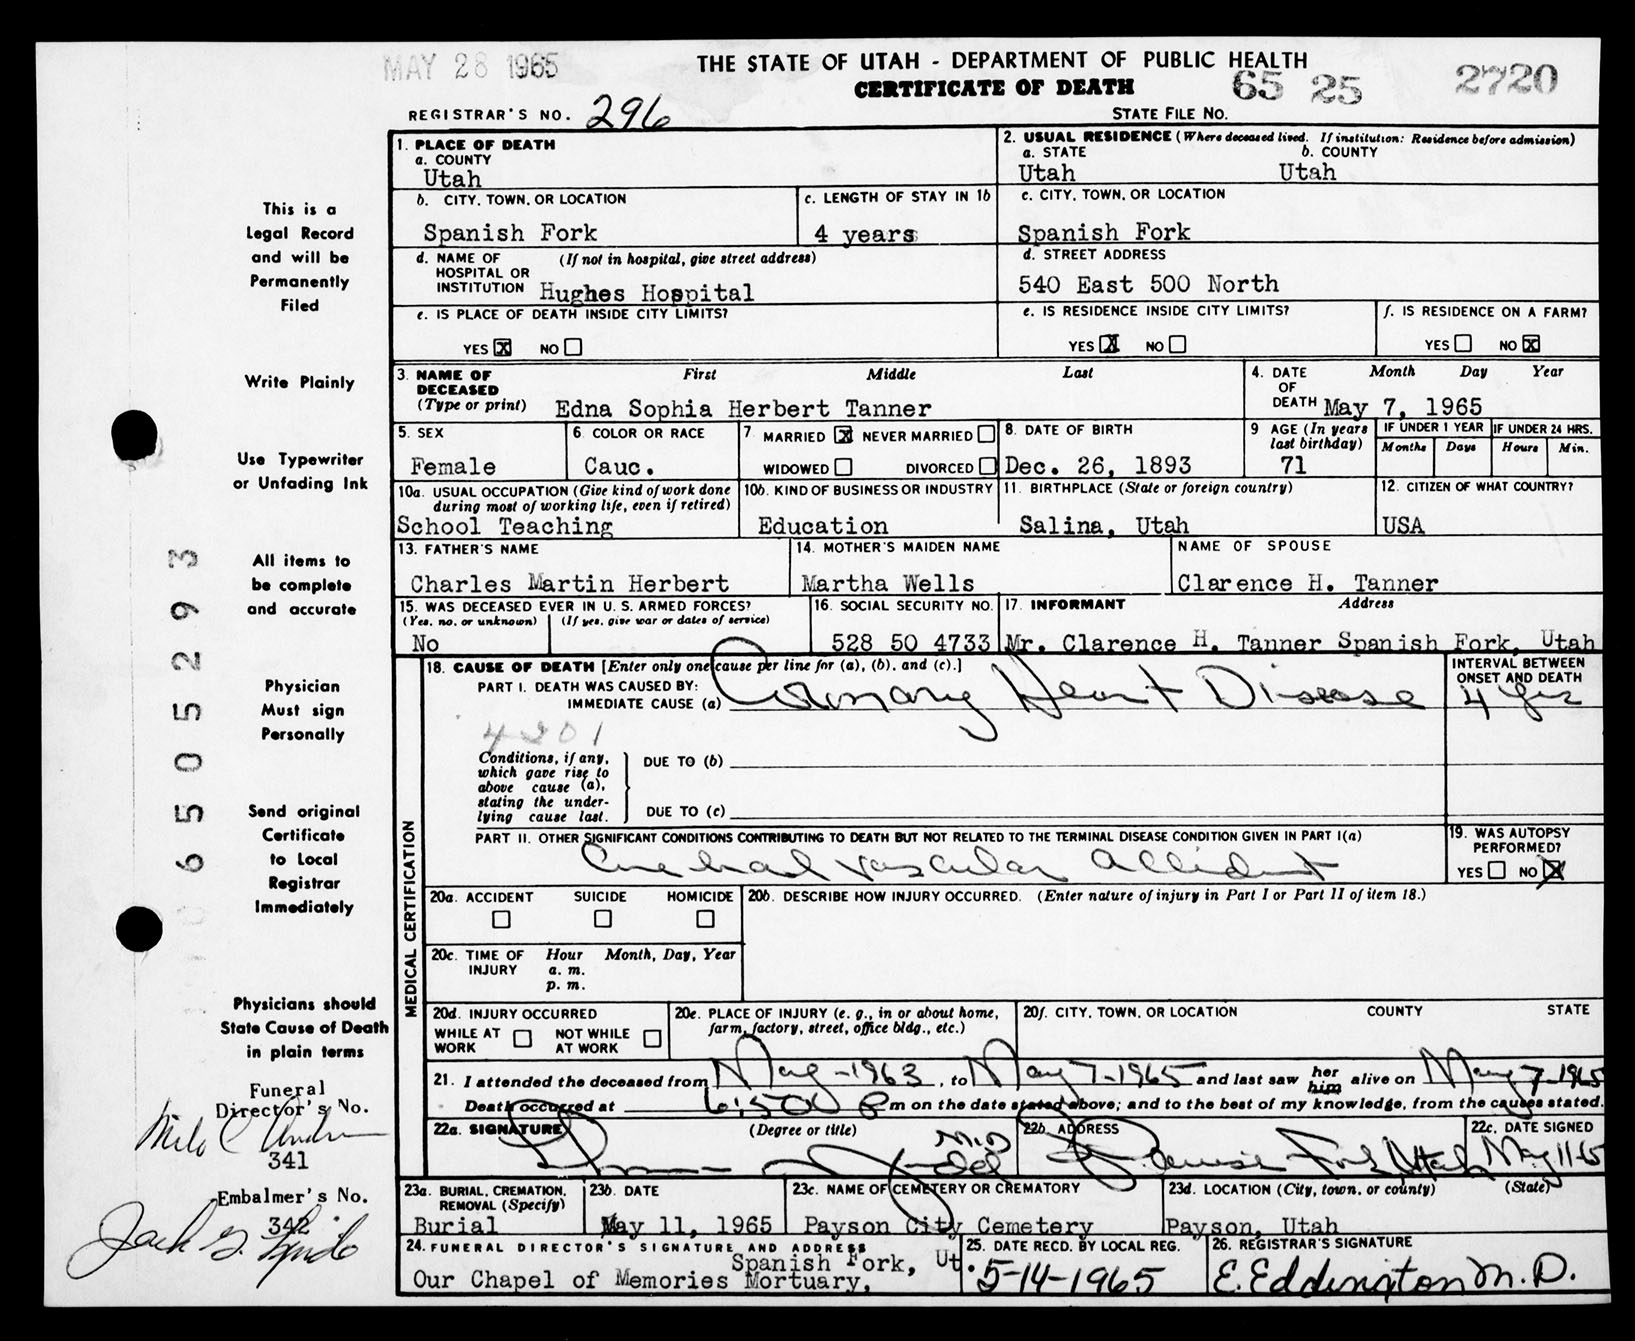 MAY 28 1965
THE STATE OF UTAH - DEPARTMENT OF PUBLIC HEALTH
CERTIFICATE OF DEATH
65 25 2720
REGISTRAR'S NO. 296
STATE FILE NO.
This is a
Legal Record
and will be
Permanently
Filed
Write Plainly
Use Typewriter
or Unfading Ink
All items to
be complete
and accurate
Physician
Must sign
Personally
Send original
Certificate
to Local
Registrar
Immediately
Physicians should
State Cause of Death
in plain terms
Funeral
Director's No.
Milo C
341
Embalmer's No.
342
Jack G.
6505293
1. PLACE OF DEATH
a. COUNTY
Utah
2. USUAL RESIDENCE (Where deceased lived. If institution: Residence before admission)
a. STATE b. COUNTY
Utah Utah
b. CITY, TOWN, OR LOCATION
Spanish Fork
c. LENGTH OF STAY IN 1b
4 years
c. CITY, TOWN, OR LOCATION
Spanish Fork
d. NAME OF (If not in hospital, give street address)
HOSPITAL OR
INSTITUTION Hughes Hospital
d. STREET ADDRESS
540 East 500 North
e. IS PLACE OF DEATH INSIDE CITY LIMITS?
YES X NO
e. IS RESIDENCE INSIDE CITY LIMITS?
YES X NO
f. IS RESIDENCE ON A FARM?
YES NO X
3. NAME OF First Middle Last
DECEASED
(Type or print) Edna Sophia Herbert Tanner
4. DATE Month Day Year
OF
DEATH May 7, 1965
5. SEX
Female
6. COLOR OR RACE
Cauc.
7. MARRIED X NEVER MARRIED
WIDOWED DIVORCED
8. DATE OF BIRTH
Dec. 26, 1893
9 AGE (In years
last birthday)
71
IF UNDER 1 YEAR
Months Days
IF UNDER 24 HRS.
Hours Min.
10a. USUAL OCCUPATION (Give kind of work done
during most of working life, even if retired)
School Teaching
10b. KIND OF BUSINESS OR INDUSTRY
Education
11. BIRTHPLACE (State or foreign country)
Salina, Utah
12. CITIZEN OF WHAT COUNTRY?
USA
13. FATHER'S NAME
Charles Martin Herbert
14. MOTHER'S MAIDEN NAME
Martha Wells
NAME OF SPOUSE
Clarence H. Tanner
15. WAS DECEASED EVER IN U. S. ARMED FORCES?
(Yes, no, or unknown) (If yes, give war or dates of service)
No
16. SOCIAL SECURITY NO.
528 50 4733
17. INFORMANT Address
Mr. Clarence H. Tanner Spanish Fork, Utah
MEDICAL CERTIFICATION
18. CAUSE OF DEATH [Enter only one cause per line for (a), (b), and (c).]
PART I. DEATH WAS CAUSED BY:
IMMEDIATE CAUSE (a) Coronary Heart Disease
INTERVAL BETWEEN
ONSET AND DEATH
4 yrs
4201
Conditions, if any,
which gave rise to
above cause (a),
stating the under-
lying cause last.
DUE TO (b)
DUE TO (c)
PART II. OTHER SIGNIFICANT CONDITIONS CONTRIBUTING TO DEATH BUT NOT RELATED TO THE TERMINAL DISEASE CONDITION GIVEN IN PART I(a)
Cerebral vascular accident
19. WAS AUTOPSY
PERFORMED?
YES NO X
20a. ACCIDENT SUICIDE HOMICIDE
20b. DESCRIBE HOW INJURY OCCURRED. (Enter nature of injury in Part I or Part II of item 18.)
20c. TIME OF Hour Month, Day, Year
INJURY a. m.
p. m.
20d. INJURY OCCURRED
WHILE AT NOT WHILE
WORK AT WORK
20e. PLACE OF INJURY (e. g., in or about home,
farm, factory, street, office bldg., etc.)
20f. CITY, TOWN, OR LOCATION COUNTY STATE
21. I attended the deceased from May - 1963, to May 7 - 1965 and last saw her him alive on May 7 - 1965
Death occurred at 6:50 P m on the date stated above; and to the best of my knowledge, from the causes stated.
22a. SIGNATURE (Degree or title)
M.D
22b. ADDRESS
Spanish Fork Utah
22c. DATE SIGNED
May 11-65
23a. BURIAL, CREMATION,
REMOVAL (Specify)
Burial
23b. DATE
May 11, 1965
23c. NAME OF CEMETERY OR CREMATORY
Payson City Cemetery
23d. LOCATION (City, town, or county) (State)
Payson, Utah
24. FUNERAL DIRECTOR'S SIGNATURE AND ADDRESS
Spanish Fork, Ut.
Our Chapel of Memories Mortuary,
25. DATE RECD. BY LOCAL REG.
5-14-1965
26. REGISTRAR'S SIGNATURE
E. Eddington M.D.